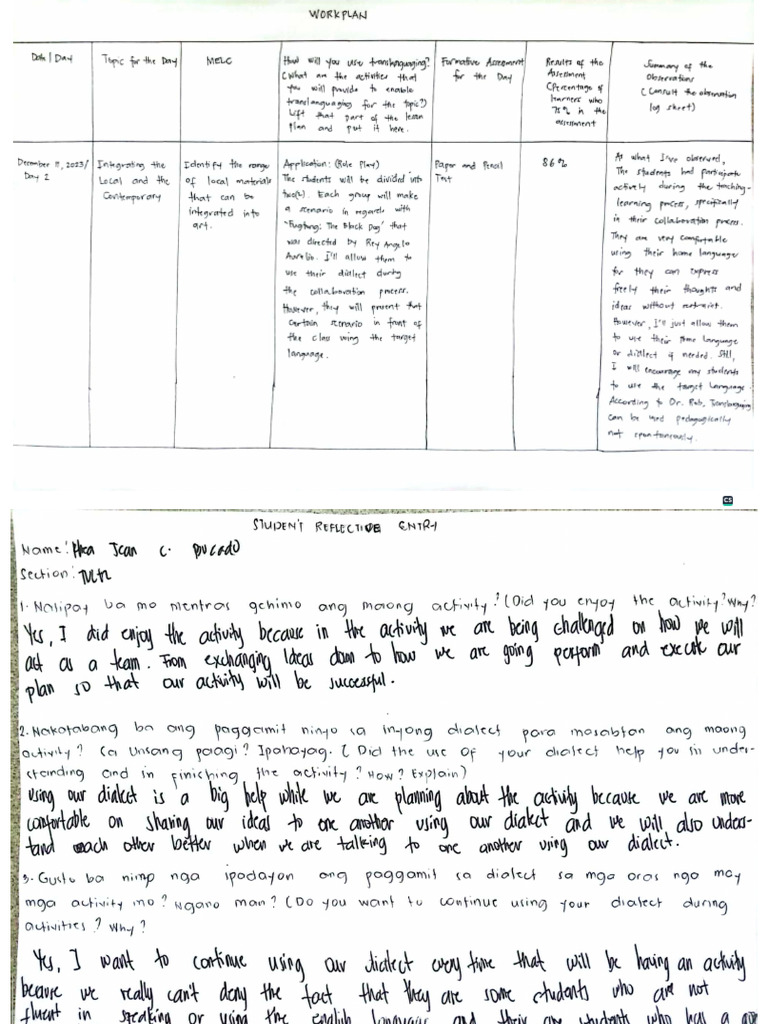 WORKPLAN
Date / Day
Topic for the Day
MELC
How will you use translanguaging?
(What are the activities that
you will provide to enable
translanguaging for the topic?)
Lift that part of the lesson
plan and put it here.
Formative Assessment
for the Day
Results of the
Assessment
(Percentage of
learners who
75% in the
assessment
Summary of the
Observations
(Consult the observation
log sheet)
December 11, 2023/
Day 2
Integrating the
Local and the
Contemporary
Identify the range
of local materials
that can be
integrated into
art.
Application: (Role Play)
The students will be divided into
two(2). Each group will make
a scenario in regards with
The Black Dog" that
was directed by Rey Angelo
Aurelio. I'll allow them to
use their dialect during
the collaboration process.
However, they will present that
certain scenario in front of
the class using the target
language.
Paper and Pencil
Test
86%
As what I've observed,
The students had participate
actively during the teaching-
learning process, specifically
in their collaboration process.
They are very comfortable
using their home language
for they can express
freely their thoughts and
ideas without restraint.
However, I'll just allow them
to use their home language
or dialect if needed. Still,
I will encourage my students
to use the target language.
According to Dr. Rob, Translanguaging
can be used pedagogically
not spontaneously.
CS
STUDENT REFLECTIVE ENTRY
Name: Jean C.
Section:
1. Nalipay ba mo mentras gehimo ang maong activity? (Did you enjoy the activity? Why?
Yes, I did enjoy the activity because in the activity we are being challenged on how we will
act as a team. From exchanging Ideas down to how we are going perform and execute our
plan so that our activity will be successful.
2. Nakatabang ba ang paggamit ninyo sa inyong dialect para masabtan ang maong
activity? Sa unsang paagi? Ipahayag. (Did the use of your dialect help you in under-
standing and in finishing the activity? How? Explain)
Using our dialect is a big help while we are planning about the activity because we are more
comfortable on sharing our ideas to one another using our dialect and we will also unders-
tand each other better when we are talking to one another using our dialect.
3. Gusto ba nimo nga ipadayon ang paggamit sa dialect sa mga oras nga may
mga activity mo? Ngano man? (Do you want to continue using your dialect during
activities? Why?
Yes, I want to continue using our dialect every time that will be having an activity
because we really can't deny the fact that they are some students who are not
fluent in speaking or using the english language and their are students who has a